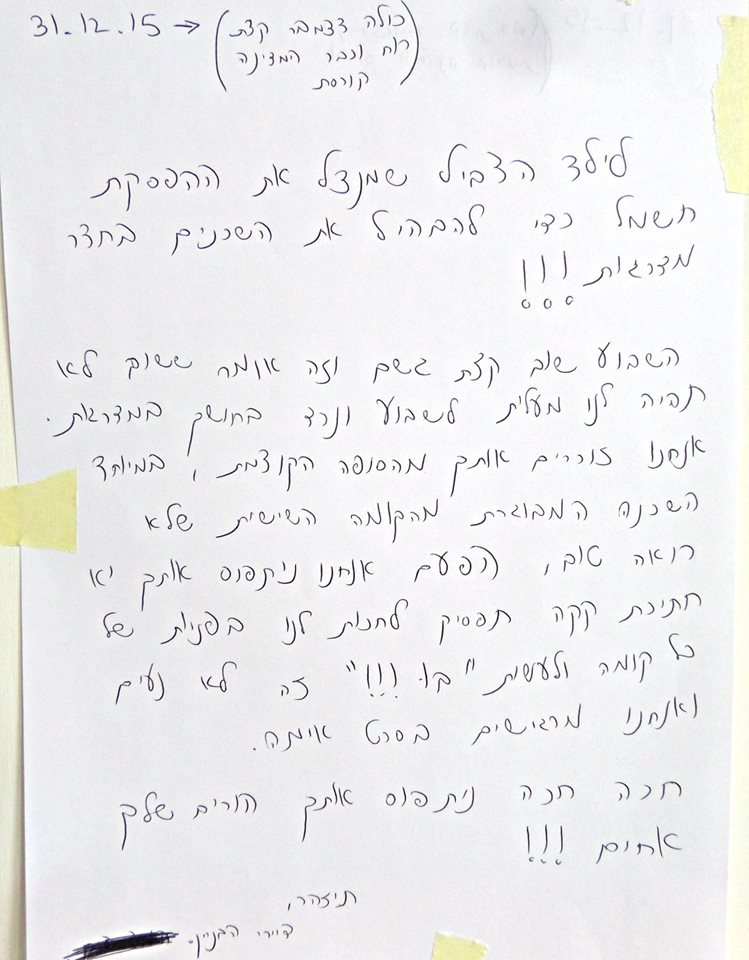 31.12.15 → (כולה דצמבר קצת
רוח וכבר המדינה
קורסת)
לילד הדביל שמנצל את ההפסקת
חשמל כדי להבהיל את השכנים בחדר
מדרגות !!!
השבוע שוב קצת גשם וזה אומר ששוב לא
תהיה לנו מעלית לשבוע ונרד בחושך במדרגות.
אנחנו זוכרים אותך מהסופה הקודמת, במיוחד
השכנה המבוגרת מהקומה השישית שלא
רואה טוב, הפעם אנחנו ניתפוס אותך יא
חתיכת קקה תפסיק לחכות לנו בפניות של
כל קומה ולעשות "בו !!!" זה לא נעים
ואנחנו מרגישים בסרט אימה.
חכה חכה ניתפוס אותך הורים שלך
אחים !!!
תיזהר,
דיירי הבניין.